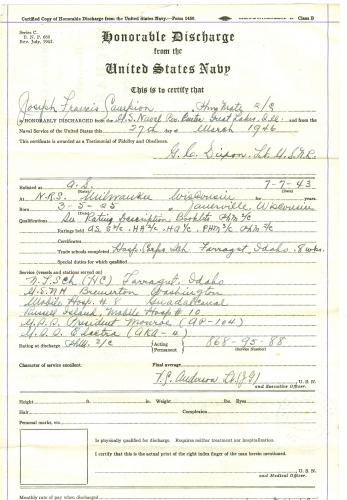 Certified Copy of Honorable Discharge from the United States Navy—Form 1450. Class B
Series C
B. N. P. 660
Rev. July, 1942.
Honorable Discharge
from the
United States Navy
This is to certify that
Joseph Francis Campion, Phm Mate 2/c
is HONORABLY DISCHARGED from the U.S. Naval Per. Center Great Lakes, Ill. and from the
Naval Service of the United States this 27th day March 1946
This certificate is awarded as a Testimonial of Fidelity and Obedience.
Lt. U.S.N.R.
Enlisted as A.S. 7-7-43
(Rate) (Date)
at N.R.S. Milwaukee Wisconsin for years.
Born 3-5-25, Janesville, Wisconsin
(Date)
Qualifications See Rating Description Booklet PhM 2/c
Ratings held AS S2/c. HA2/c. HA1/c. PHM3/c PhM 2/c
Certificates
Trade schools completed Hosp. Corps Sch Farragut, Idaho. 8 wks.
Special duties for which qualified
Service (vessels and stations served on)
N.T.Sch (HC) Farragut, Idaho
U.S.N.H Bremerton Washington
Mobile Hosp. # 8 Guadalcanal
Russell Island, Mobile Hosp # 10
U.S.S. President Monroe (AP-104)
U.S.S. Electra (AKA-4)
Rating at discharge PhM. 2/c {Acting Permanent 868-95-88
(Service Number)
Character of service excellent. Final average
Anderson Lt. (JG), U. S. N
and Executive Officer.
Height feet in. Weight lbs. Eyes
Hair Complexion
Personal marks, etc.
Is physically qualified for discharge. Requires neither treatment nor hospitalization.
I certify that this is the actual print of the right index finger of the man herein mentioned.
, U. S. N
and Medical Officer.
Monthly rate of pay when discharged